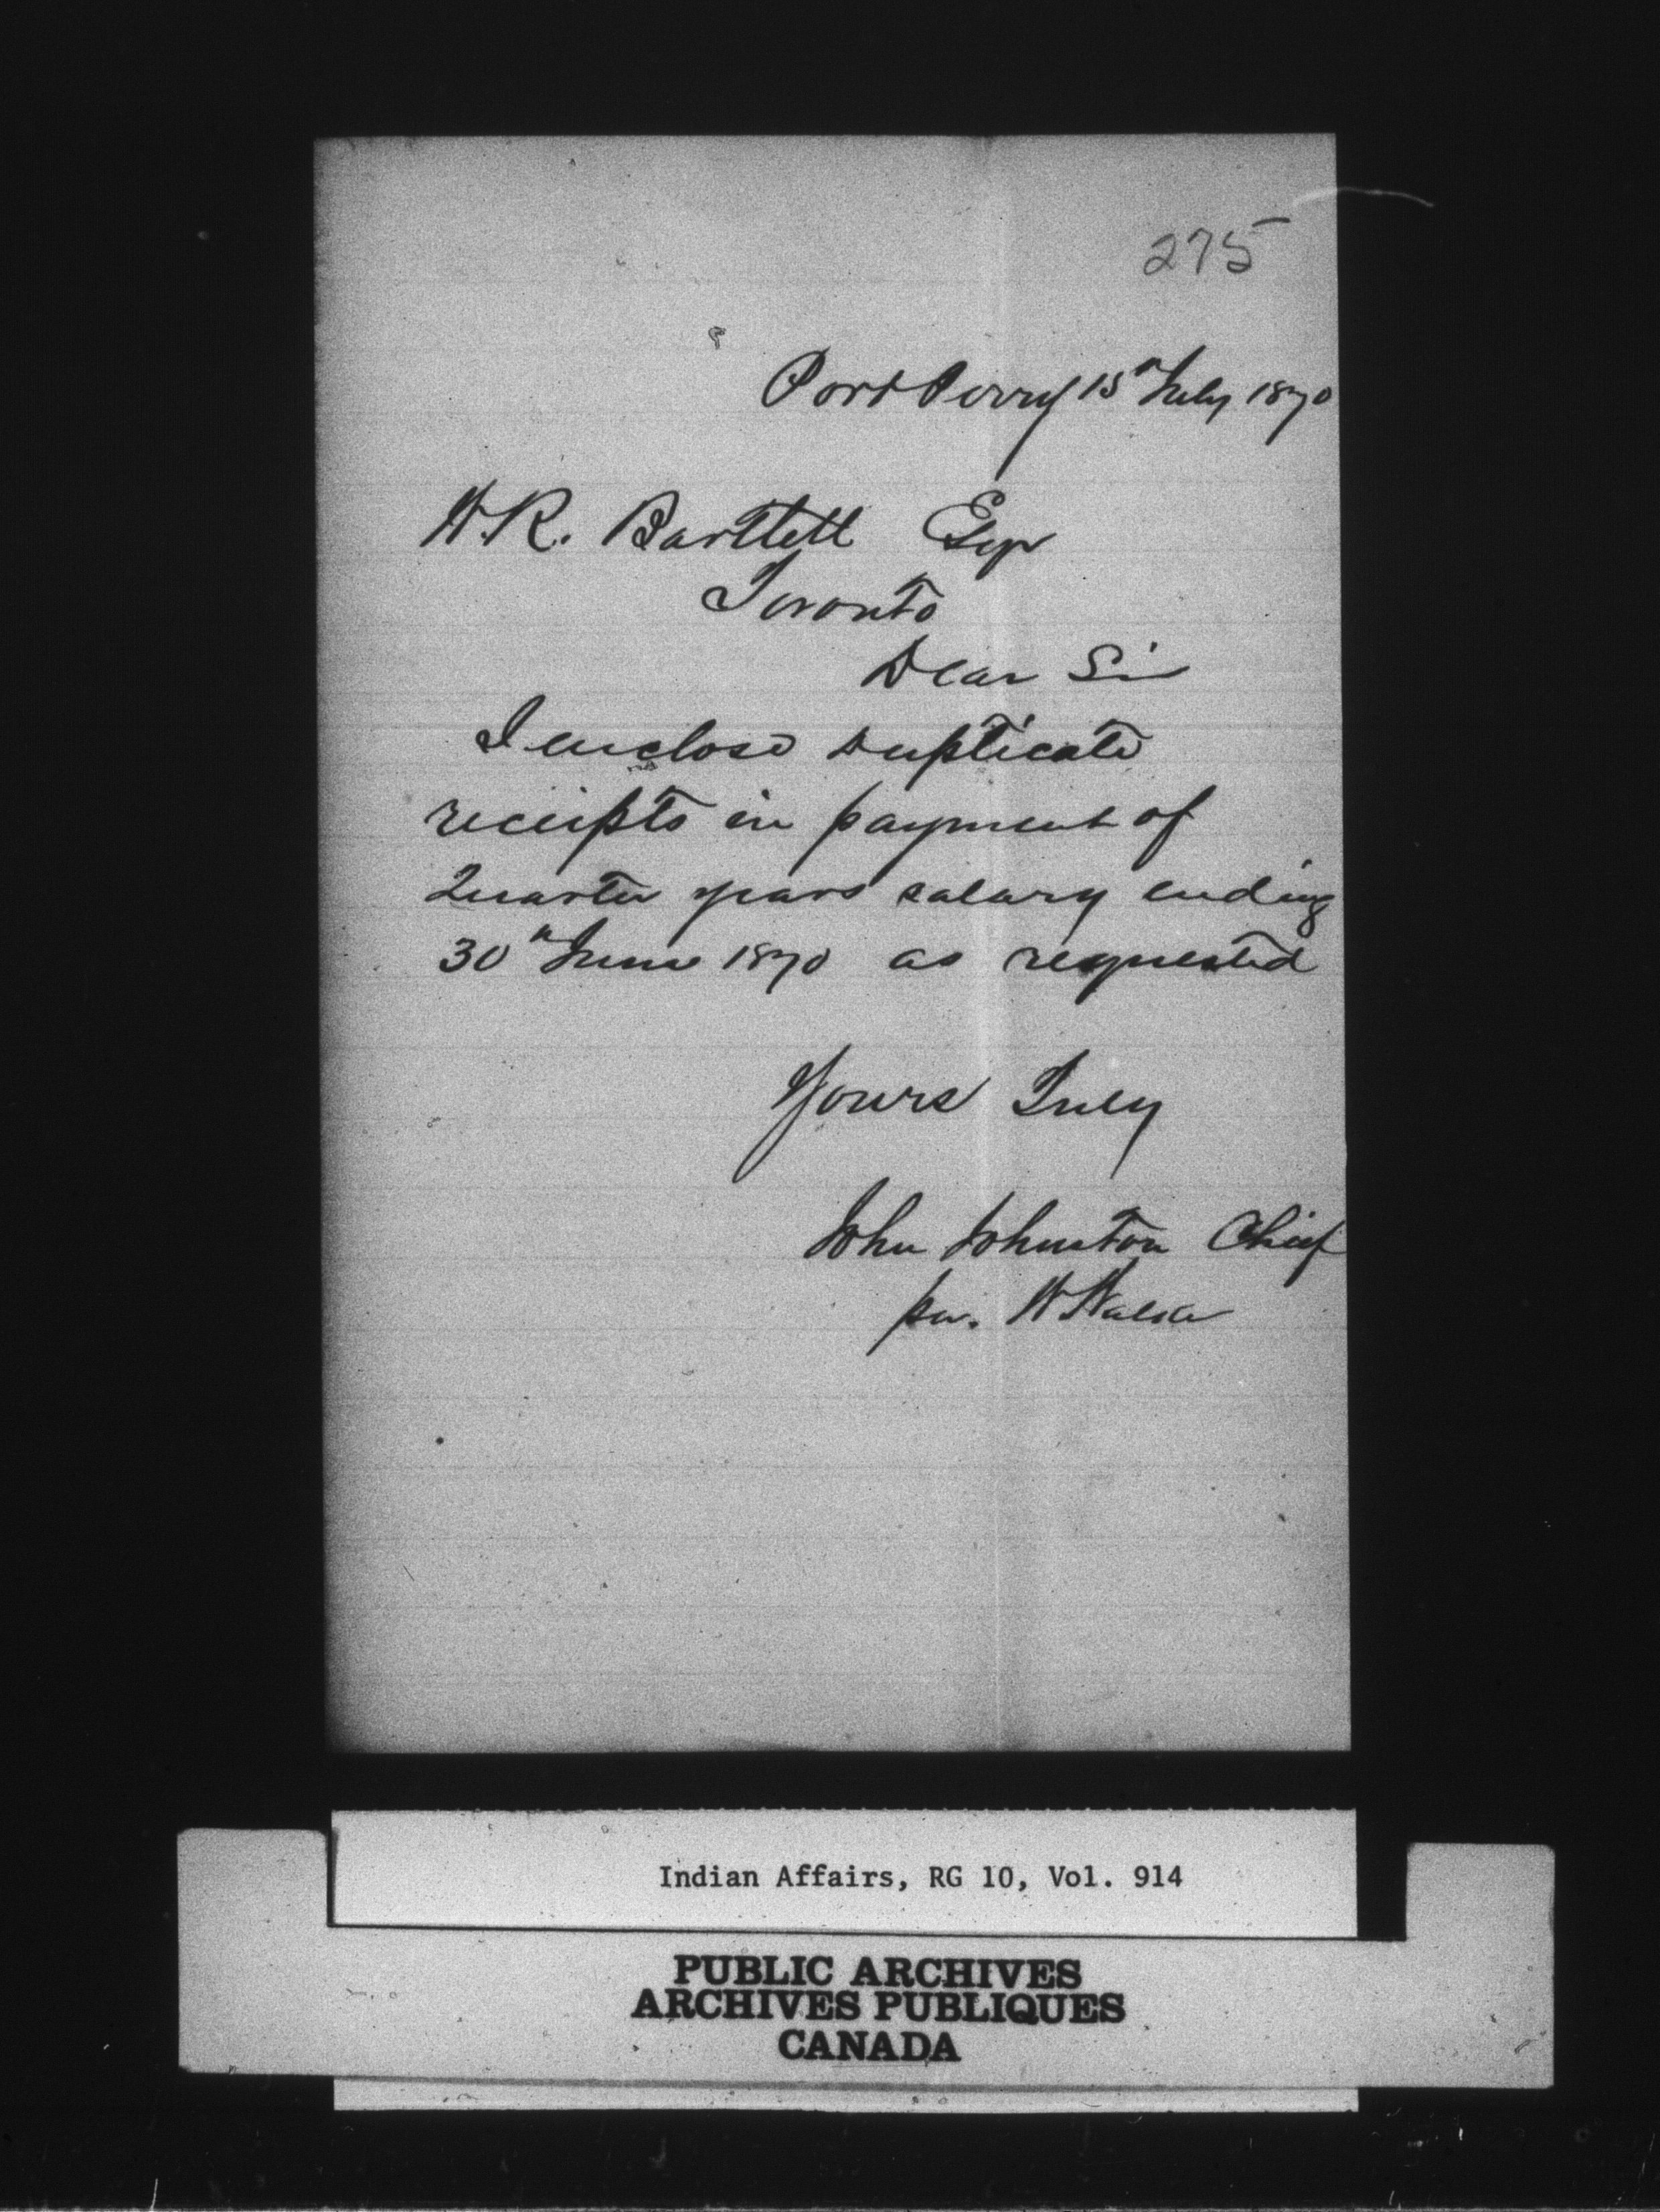 275
Port Perry 15th July 1870
W.R. Bartlett Esqr
Toronto
Dear Sir
I enclose duplicate
receipts in payment of
Quarter years salary ending
30th June 1870 as requested
Yours Truly
John Johnston Chief
per. W
Indian Affairs, RG 10, Vol. 914
PUBLIC ARCHIVES
ARCHIVES PUBLIQUES
CANADA